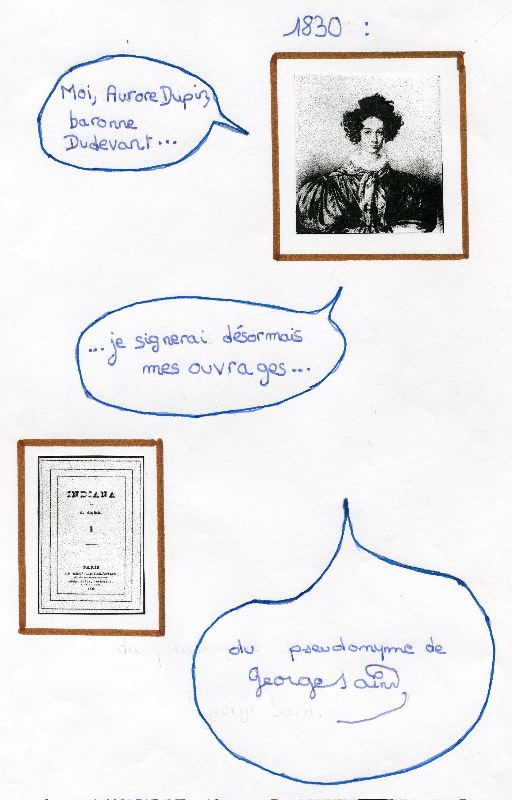 1830 :
Moi, Aurore Dupin,
baronne
Dudevant...
...je signerai désormais
mes ouvrages...
INDIANA
I
PARIS
du pseudonyme de
George Sand